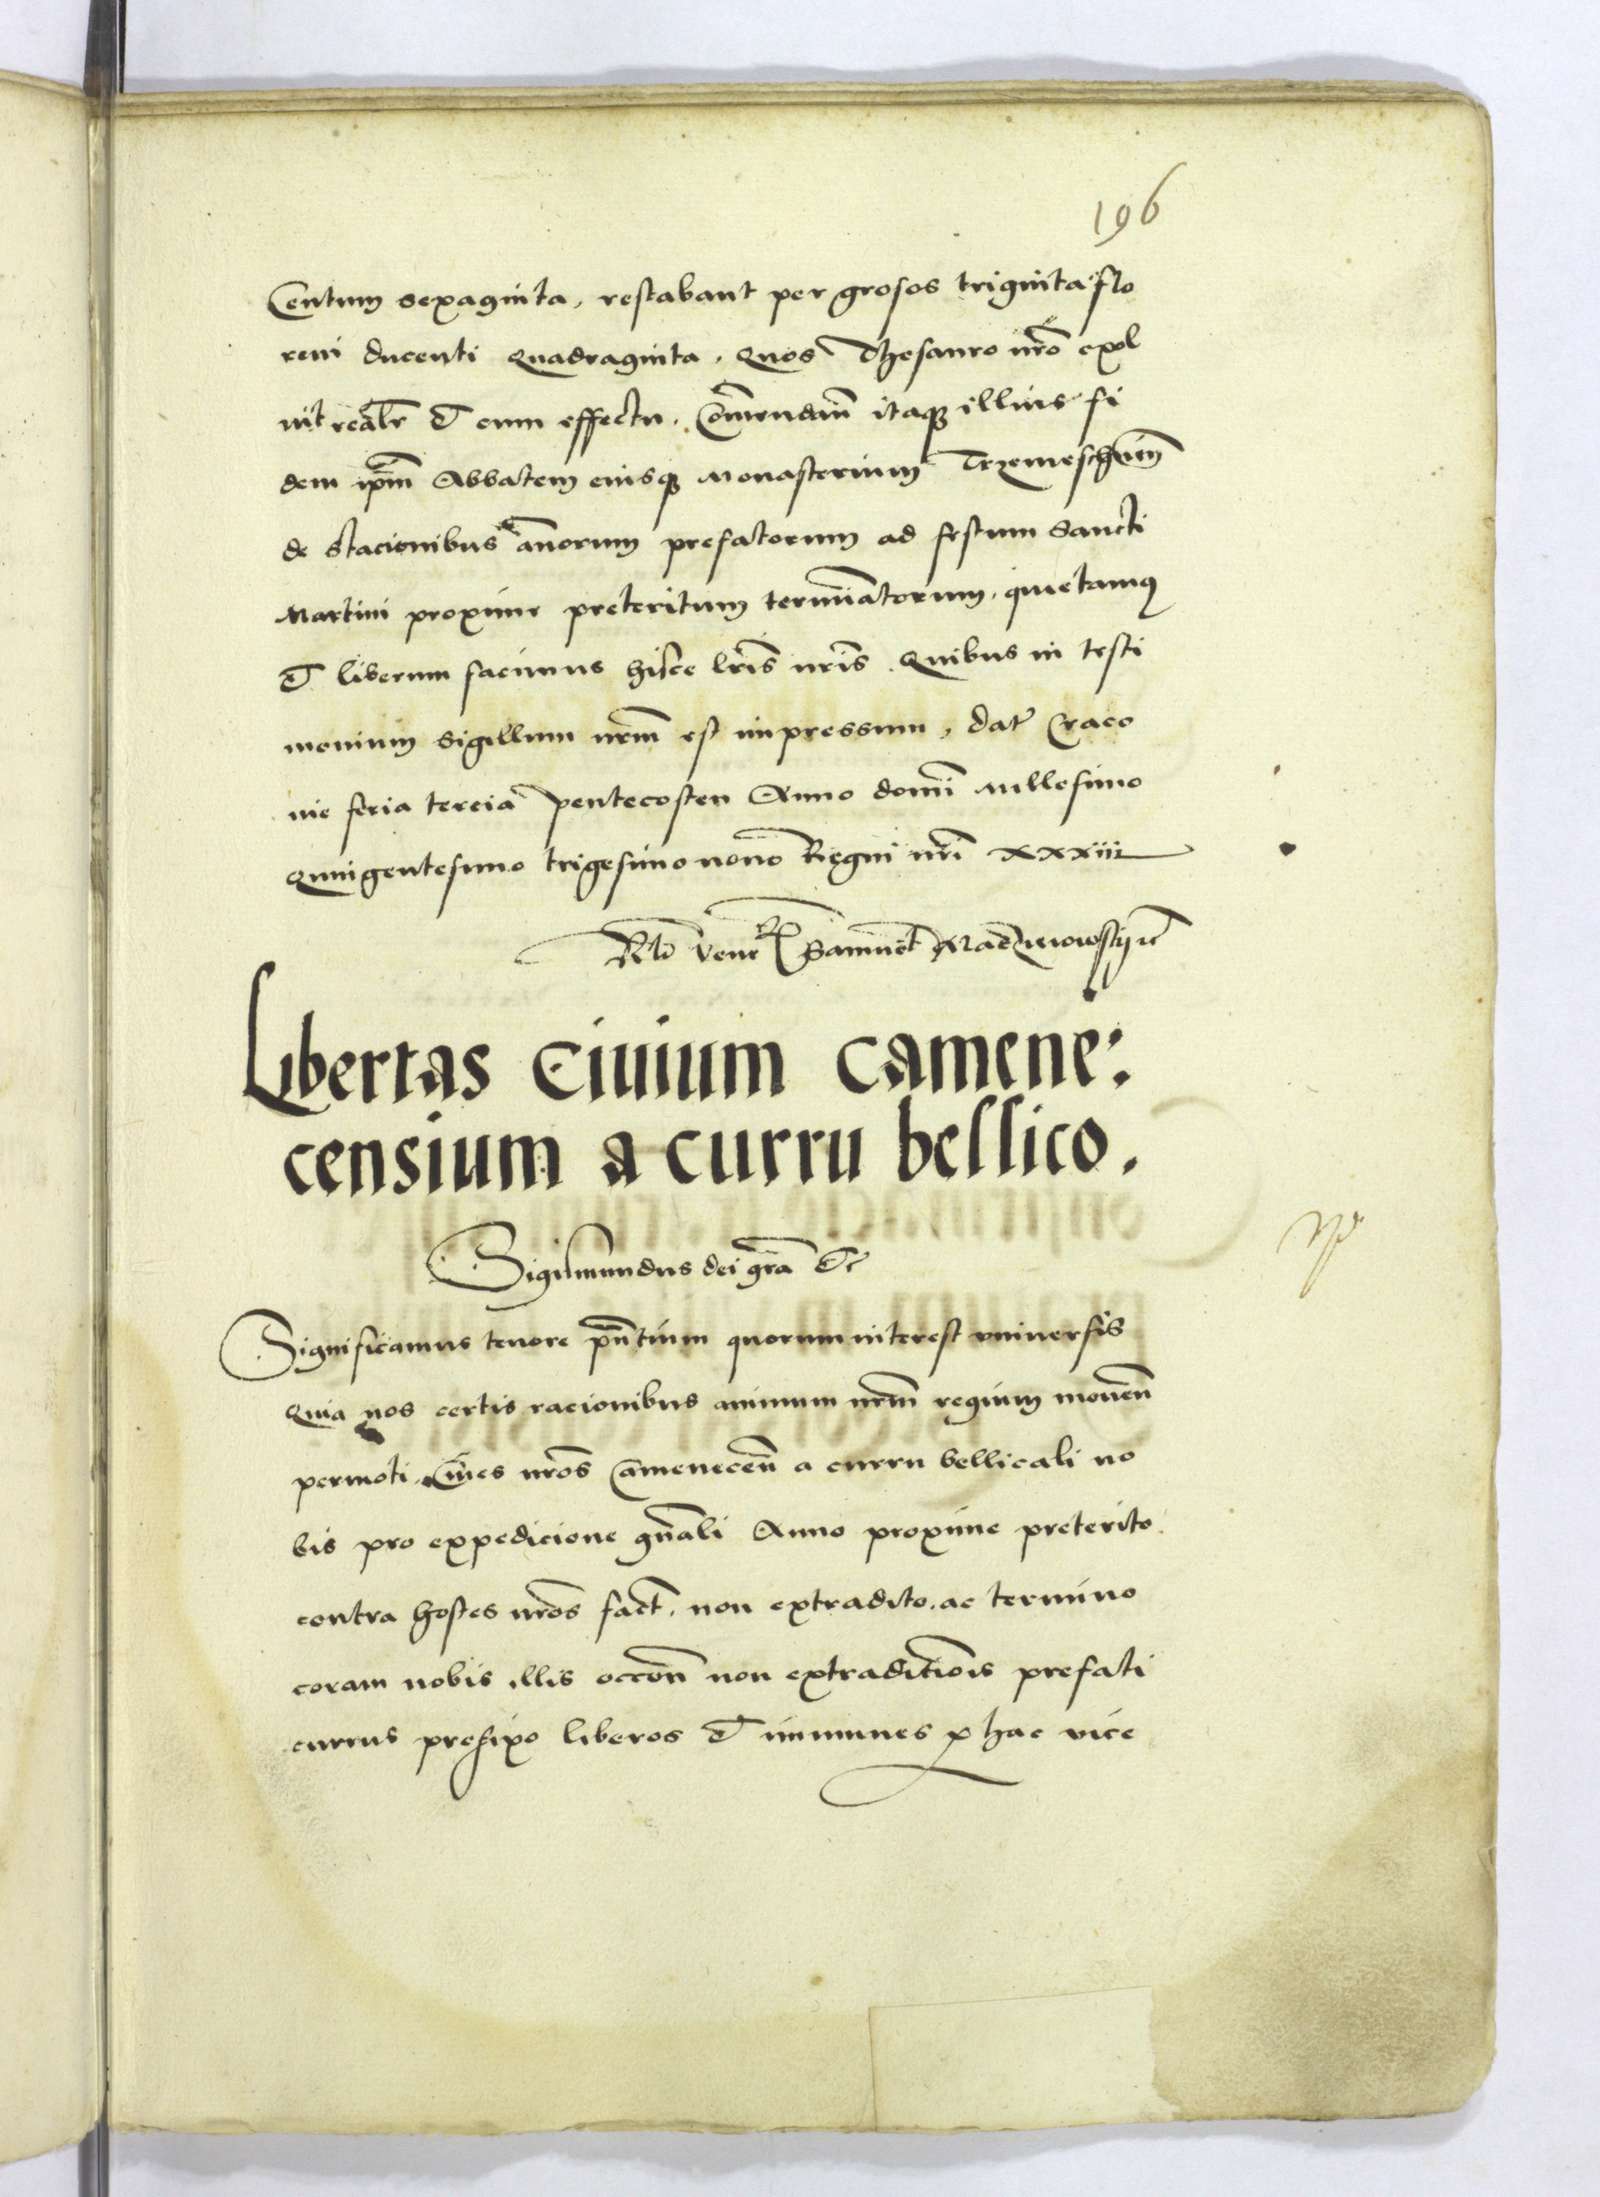 196
Centum sexaginta, restabant per grosos triginta flo
reni ducenti quadraginta. quos Thesauro nr̄o exol
uit realr̄ et cum effectu. Com̄endan̄ itaq illius fi
dem ip̄m Abbatem eiusq Monasterium Trzemeschn̄m
de stacionibus an̄orum prefatorum ad festum Sancti
Martini proxime preteritum termin̄atorum. quietamus
et liberum facimus hisce lr̄is nr̄is. Quibus in testi
monium sigillum nr̄m est impressum, dat̄ Craco
vie feria tercia pentecosten Anno domi̅ Millesimo
quingentesimo trigesimo nono Regni nr̄i xxxiii
Rlō Vener Samuel Macieiowskij etc̄
Libertas Ciuium Camene:
censium a curru bellico.
Sigismundus dei gr̄a etc̄
Significamus tenore pn̄tium quorum interest vniuersis
Quia nos certis racionibus animum nr̄m regium mouen̄
permoti. Ciues nr̄os Camenecen̄ a curru bellicali no
bis pro expedicione gn̄ali Anno proxime preterito
contra hostes nr̄os fact̄. non extradito. ac termino
coram nobis illis occōn̄ non extradit̄ionis prefati
currus prefixo liberos et immunes p hac vice